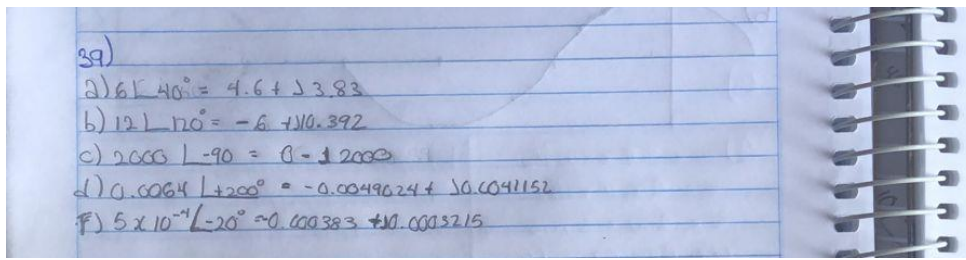 39)
a) 6∠40° = 4.6 + J 3.83
b) 12∠120° = -6 + J10.392
c) 2000 ∠-90 = 0 - J 2000
d) 0.0064 ∠+200° = -0.0049024 + J0.0041152
F) 5 x 10⁻⁴ ∠-20° = -0.000383 + J0.0003215